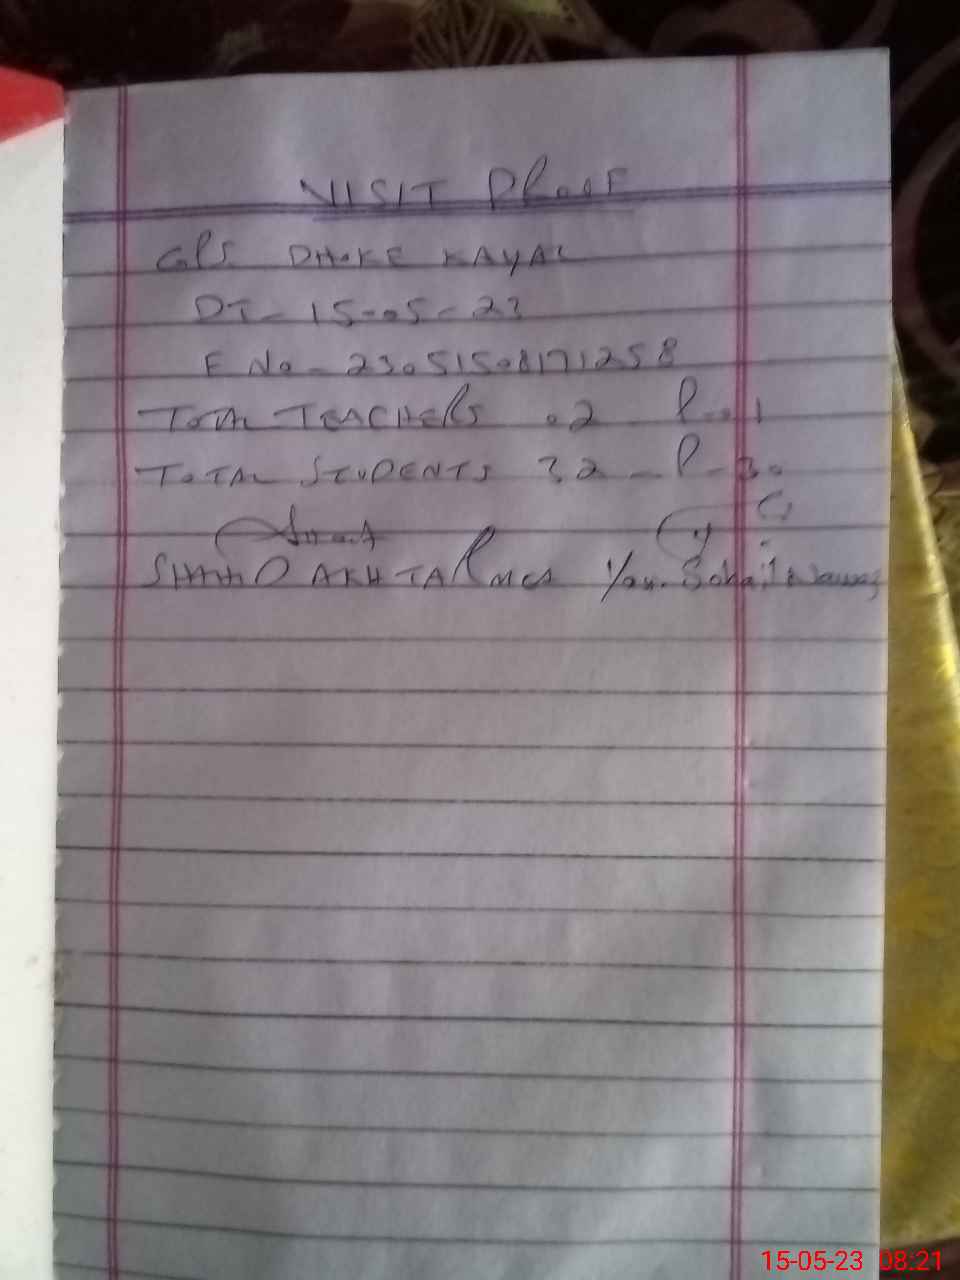 VISIT PRooF
GPS DHoKE KAYAL
DT - 15-05-23
F No - 23051508171258
ToTAL TEACHERS 02 P-01
ToTAL STUDENTS 32 - P-30
SHAHID AKHTAR MCA Sohail Nawaz
15-05-23 08:21